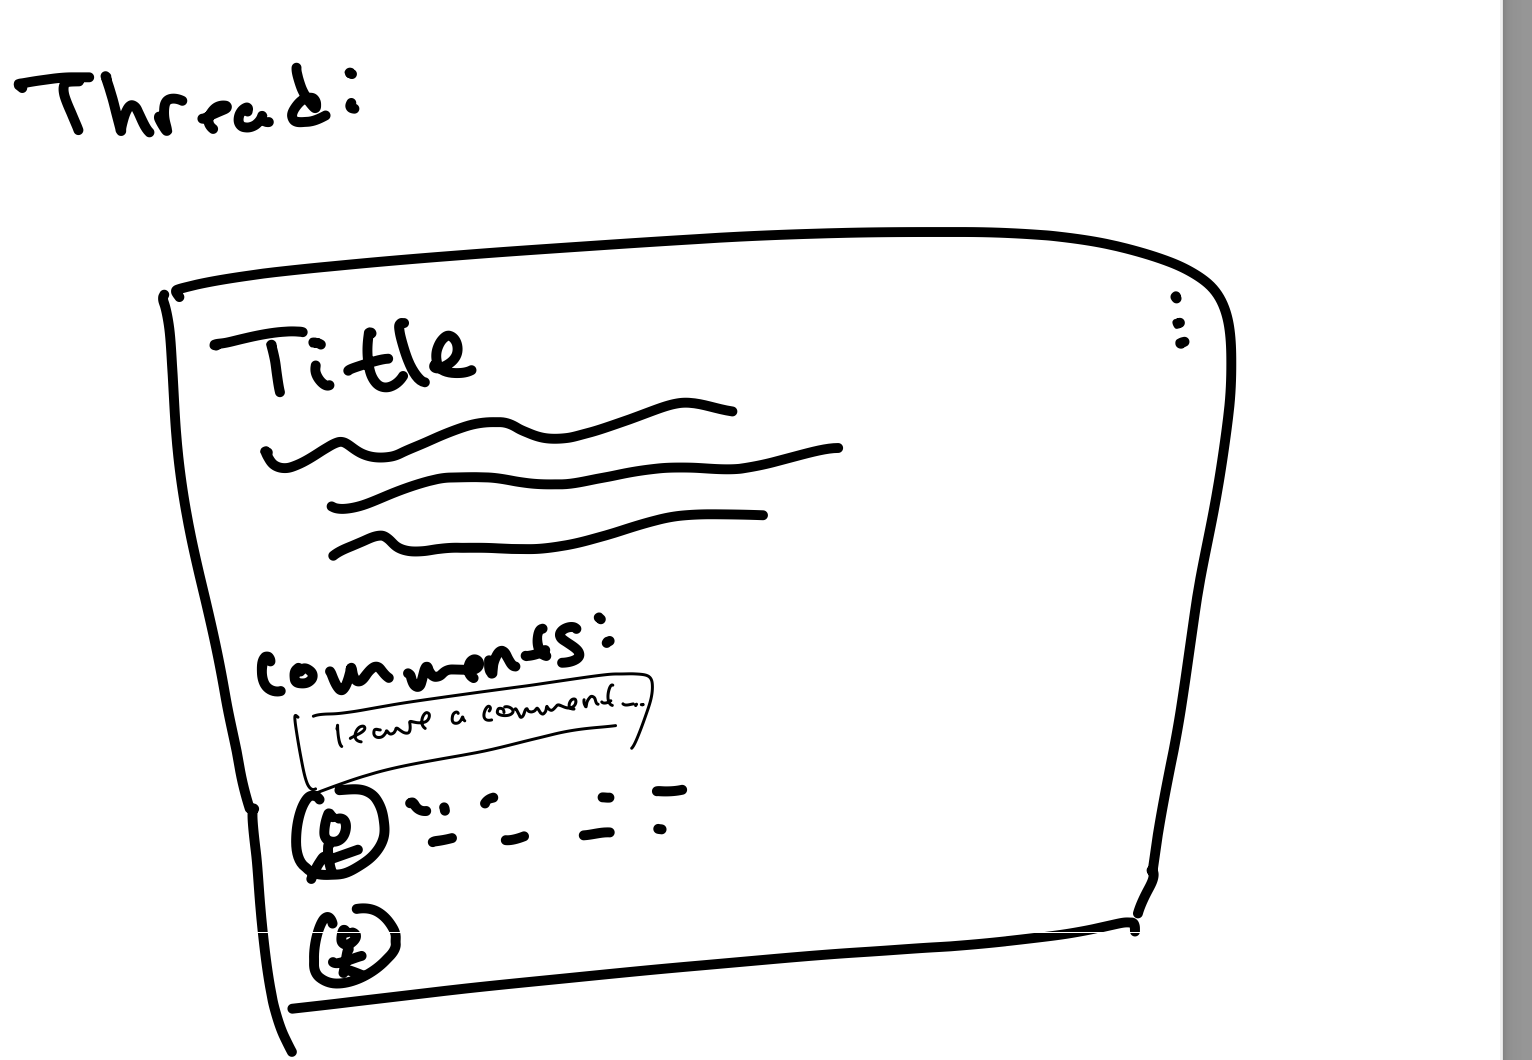 Thread:
Title
comments:
leave a comment...